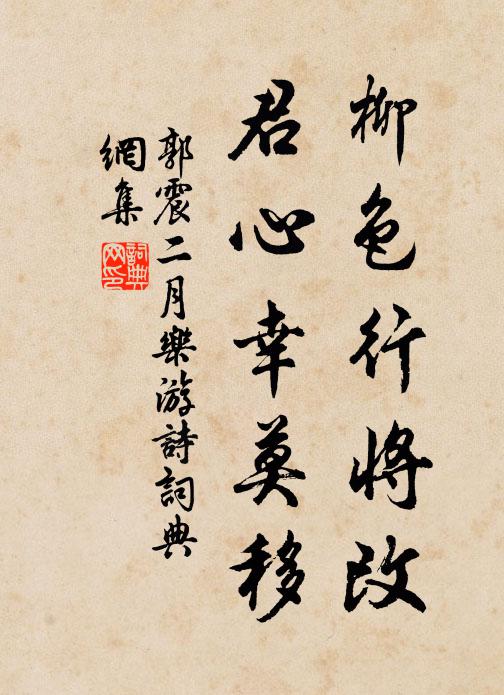 柳色行將改
君心幸莫移
郭震二月樂游詩詞典
網集
詞典
网印